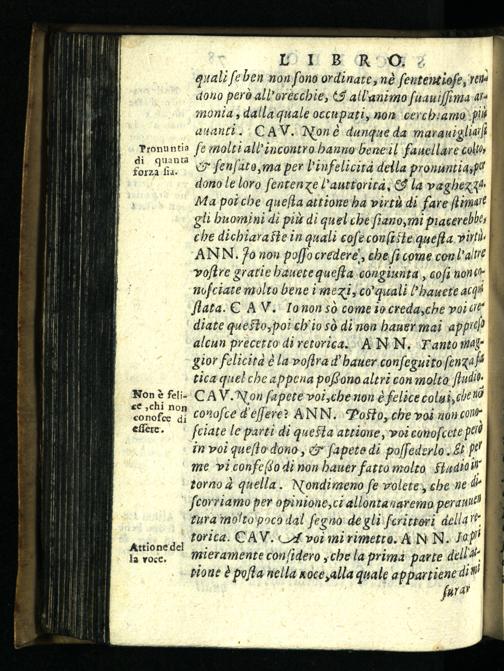 LIBRO
quali se ben non sono ordinate, nè sententiose, ren
dono però all'orecchie, & all'animo suauissima ar
monia, dalla quale occupati, non cerchiamo più
auanti. CAV. Non è dunque da marauigliarsi
Pronuntia
di quanta
forza sia.
se molti all'incontro hanno bene il fauellare colto,
& sensato, ma per l'infelicità della pronuntia, per
dono le loro sentenze l'auttorità, & la vaghezza.
Ma poi che questa attione ha virtù di fare stimare
gli huomini di più di quel che siano, mi piacerebbe,
che dichiaraste in quali cose consiste questa virtù.
ANN. Io non posso credere, che si come con l'altre
vostre gratie hauete questa congiunta, così non co-
nosciate molto bene i mezi, co' quali l'hauete acqui
stata. CAV. Io non sò come io creda, che voi cre-
diate questo, poi ch'io sò di non hauer mai appreso
alcun precetto di retorica. ANN. Tanto mag-
gior felicità è la vostra d'hauer conseguito senza fa
tica quel che appena possono altri con molto studio.
Non è feli-
ce, chi non
conosce di
essere.
CAV. Non sapete voi, che non è felice colui, che nõ
conosce d'essere? ANN. Posto, che voi non cono-
sciate le parti di questa attione, voi conoscete però
in voi questo dono, & sapete di possederlo. Et per
me vi confesso di non hauer fatto molto studio in-
torno à quella. Nondimeno se volete, che ne di-
scorriamo per opinione, ci allontanaremo perauuen
tura molto poco dal segno de gli scrittori della re-
torica. CAV. A voi mi rimetto. ANN. Io pri
Attione del
la voce.
mieramente considero, che la prima parte dell'at-
tione è posta nella voce, alla quale appartiene di mi
surar